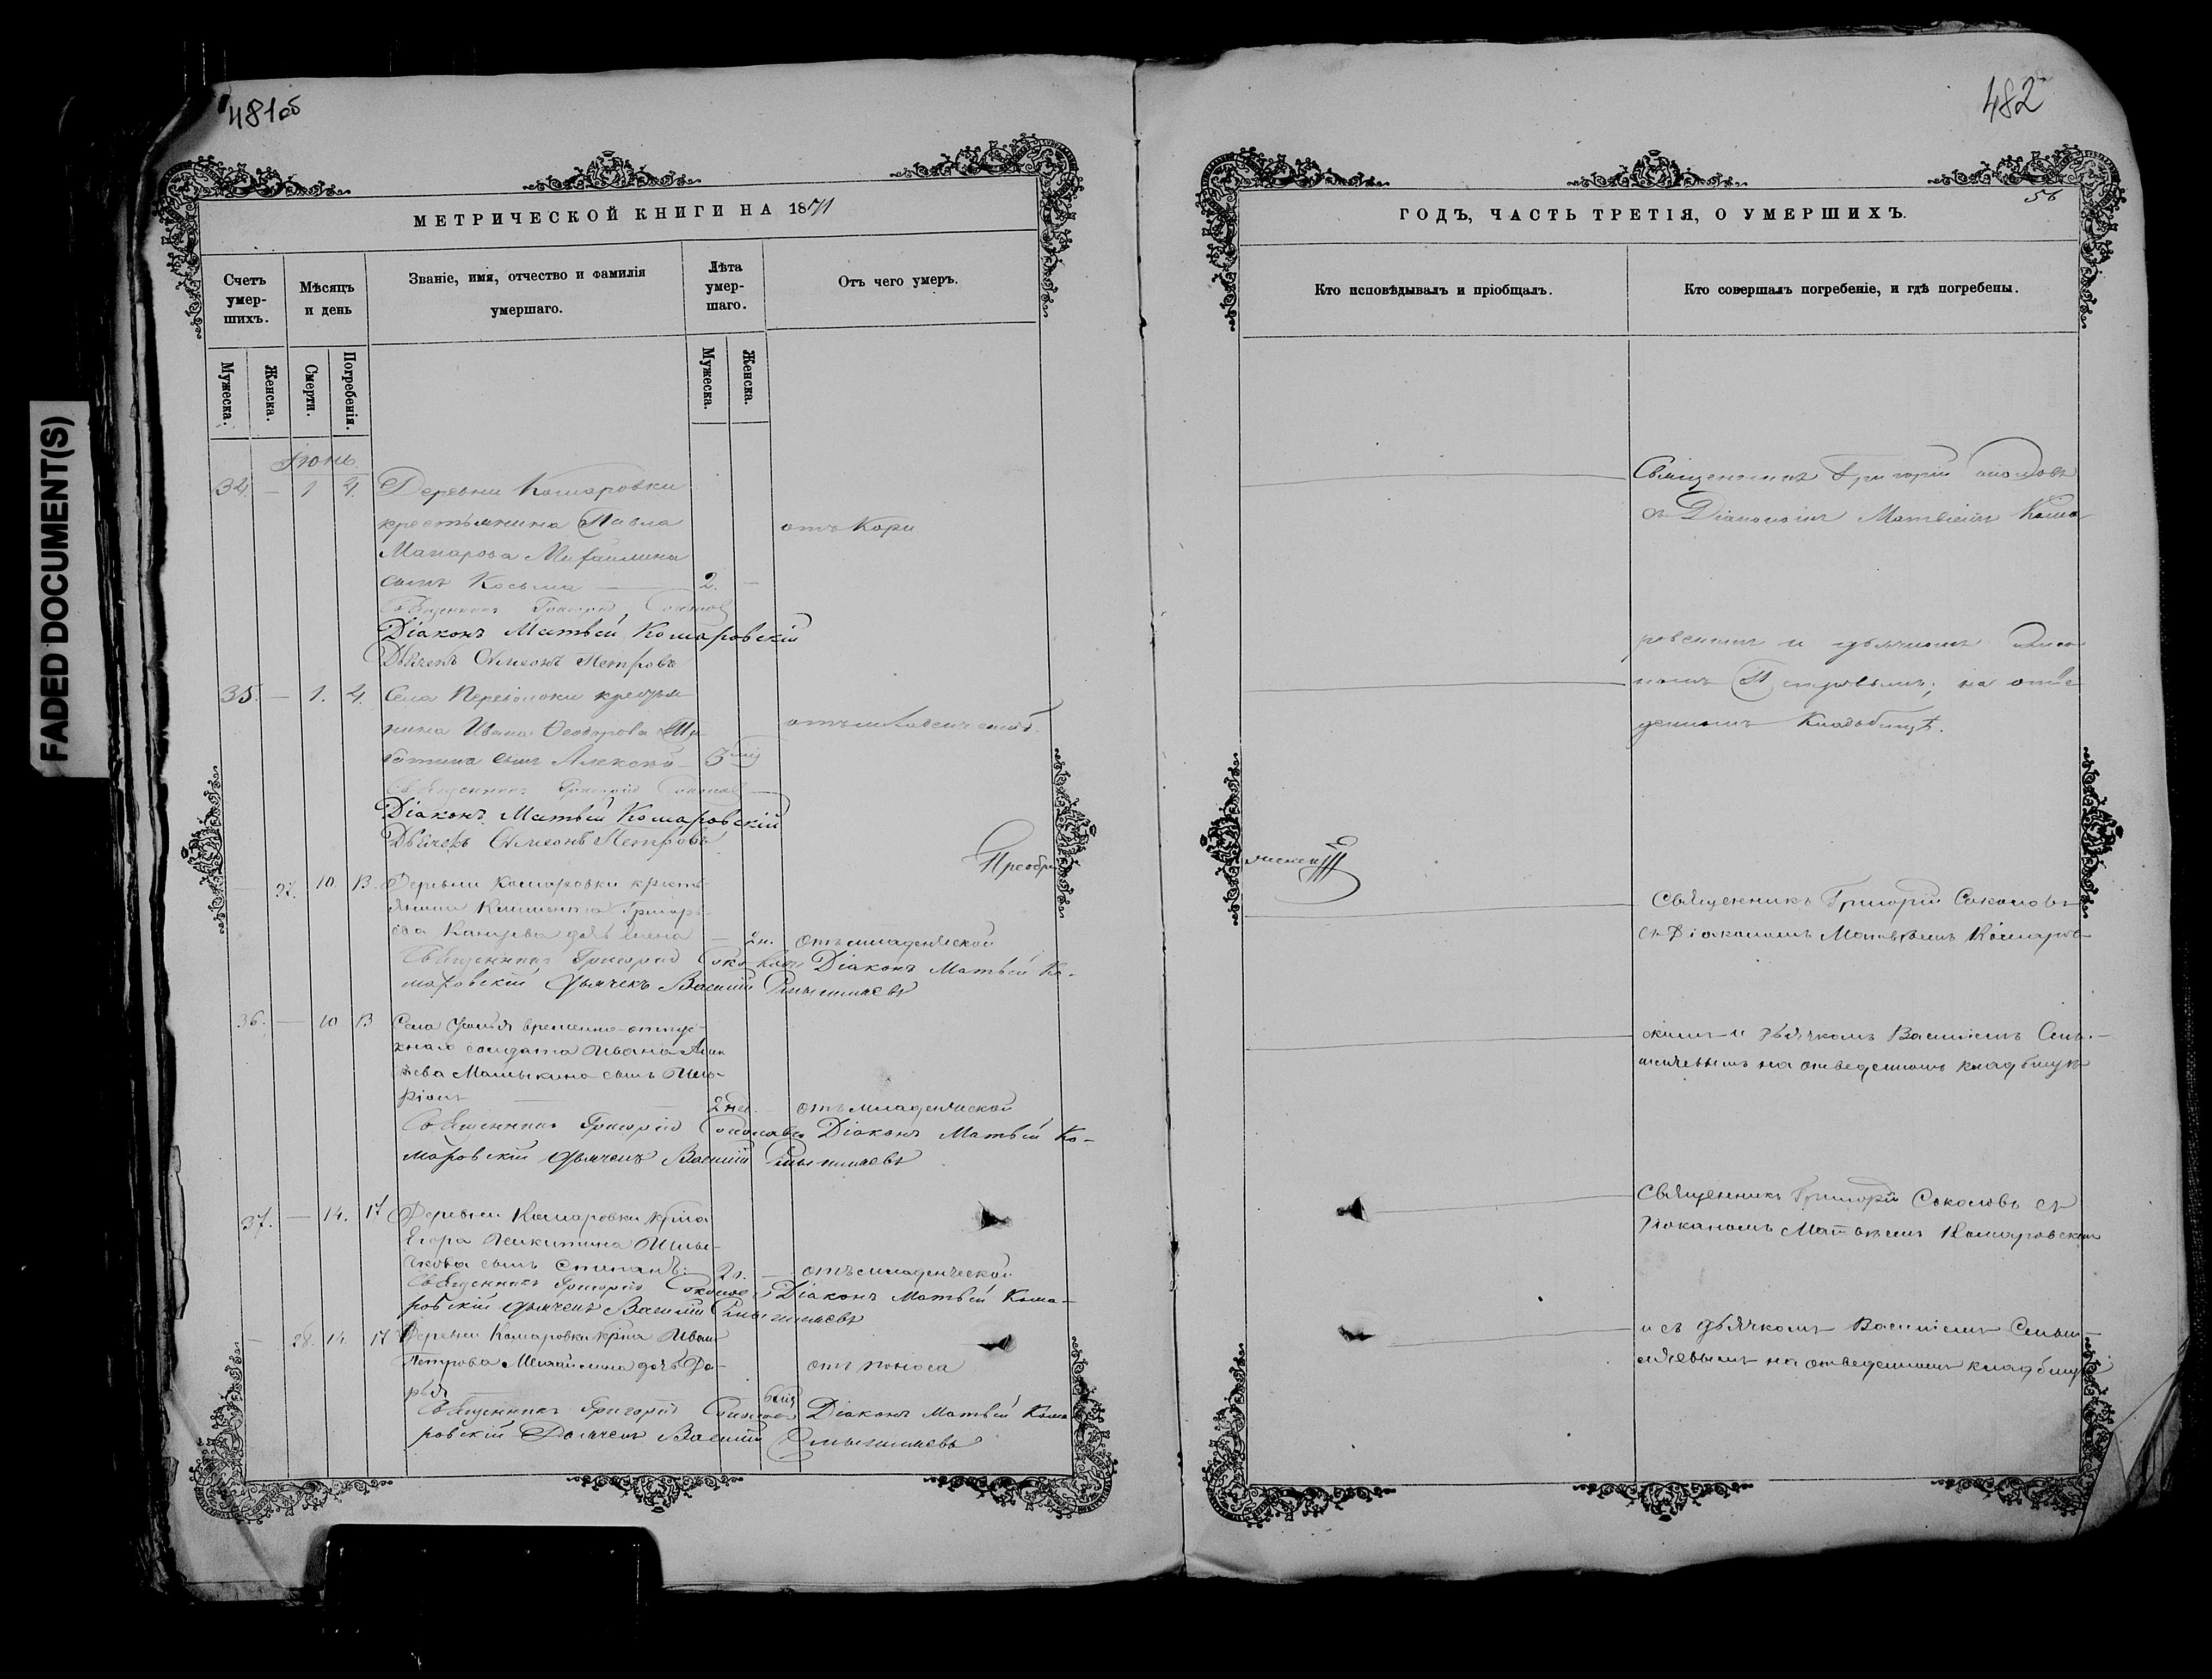 FADED DOCUMENT(S)
481об
МЕТРИЧЕСКОЙ КНИГИ НА 1871
Счетъ умер-шихъ.
Мѣсяцъ и день
Званіе, имя, отчество и фамилія умершаго.
Лѣта умер-шаго.
Отъ чего умеръ.
Мужеска.
Женска.
Смерти.
Погребенія.
Мужеска.
Женска.
Іюнь
34. — 1 4. Деревни Комаровки
крестьянина Павла
отъ Кори
Макарова Михайлина
сынъ Косьма — 2. —
Священникъ Григорій Соколовъ
Діаконъ Матвѣй Комаровскій
Дьячекъ Симеонъ Петровъ
35. — 1. 4. Села Переволоки крестья
нина Ивана Ѳеодорова
отъ младенческой.
сынъ Алексѣй
Священникъ Григорій Соколовъ
Діаконъ Матвѣй Комаровскій
Дьячекъ Симеонъ Петровъ
Преобра
— 27. 10. 13. Деревни Комаровки кресть-
янина Климента Григорь-
ева дочь Елена — 2н. отъ младенческой
Священникъ Григорій Соколовъ Діаконъ Матвѣй Ко-
маровскій Дьячекъ Василій
36. — 10 13 Села временно-отпус-
кнаго солдата Ивана
сынъ
2 нед. — отъ младенческой
Священникъ Григорій Соколовъ Діаконъ Матвѣй Ко-
маровскій Дьячекъ Василій
37. — 14. 17 Деревни Комаровки крна
Егора Никитина
сынъ Степанъ. 2н. — отъ младенческой
Священникъ Григорій Соколовъ Діаконъ Матвѣй Кома-
ровскій Дьячекъ Василій
— 28. 14. 17 Деревни Комаровки крна Ивана
Петрова Михайлина дочь Да-
отъ поноса
рья
Священникъ Григорій Соколовъ Діаконъ Матвѣй Кома
ровскій Дьячекъ Василій
482
56
ГОДЪ, ЧАСТЬ ТРЕТІЯ, О УМЕРШИХЪ.
Кто исповѣдывалъ и пріобщалъ.
Кто совершалъ погребеніе, и гдѣ погребены.
Священникъ Григорій Соколовъ
съ Діакономъ Матвѣемъ Кома-
ровскимъ и дьячкомъ Симео
номъ Петровымъ; на отве
денномъ Кладбищѣ.
женск
Священникъ Григорій Соколовъ
съ Діакономъ Матвѣемъ Комаров-
скимъ и дьячкомъ Василіемъ
на отведенномъ кладбищѣ
Священникъ Григорій Соколовъ съ
діакономъ Матвѣемъ Комаровским
и съ дьячкомъ Василіемъ
на отведенномъ кладбищѣ